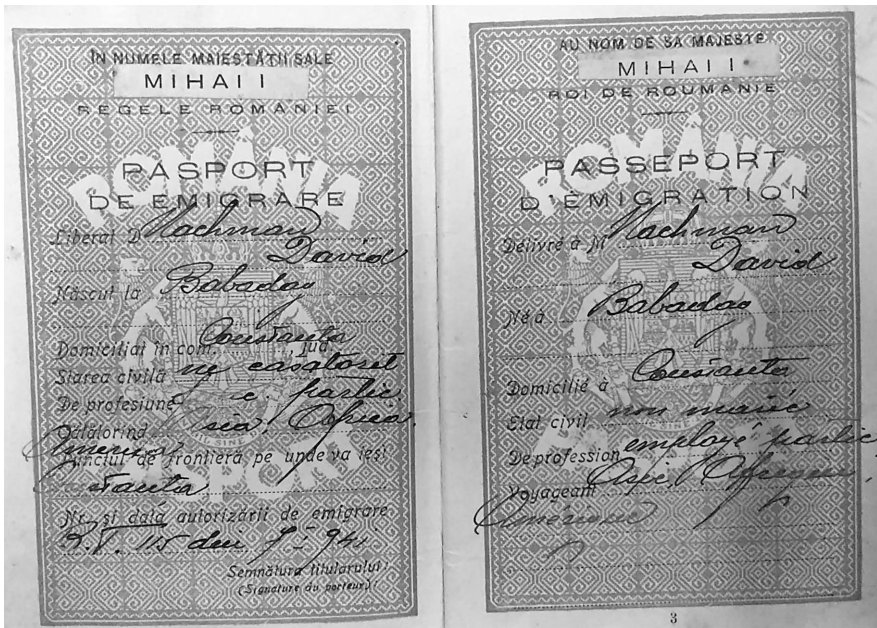 ÎN NUMELE MAIESTĂȚII SALE
MIHAI I
REGELE ROMÂNIEI
ROMÂNIA
PAȘPORT
DE EMIGRARE
Liberat D Nachman
David
Născut la Babadag
Domiciliat în com. Constanta, jud.
Starea civilă ne casatorit
De profesiune f. partic.
Călătorind Asia, Africa,
America
Punctul de frontieră pe unde va ieși
stanta
Nr. și data autorizării de emigrare
115 din 7 I 941
Semnătura titularului:
(Signature du porteur):
AU NOM DE SA MAJESTE
MIHAI I
ROI DE ROUMANIE
ROMÂNIA
PASSEPORT
D'ÉMIGRATION
Délivré à M Nachman
David
Né à Babadag
Domicilié à Constanta
Etat civil non marié
De profession employé partic
Voyageant Asie, Afrique,
Amérique
3